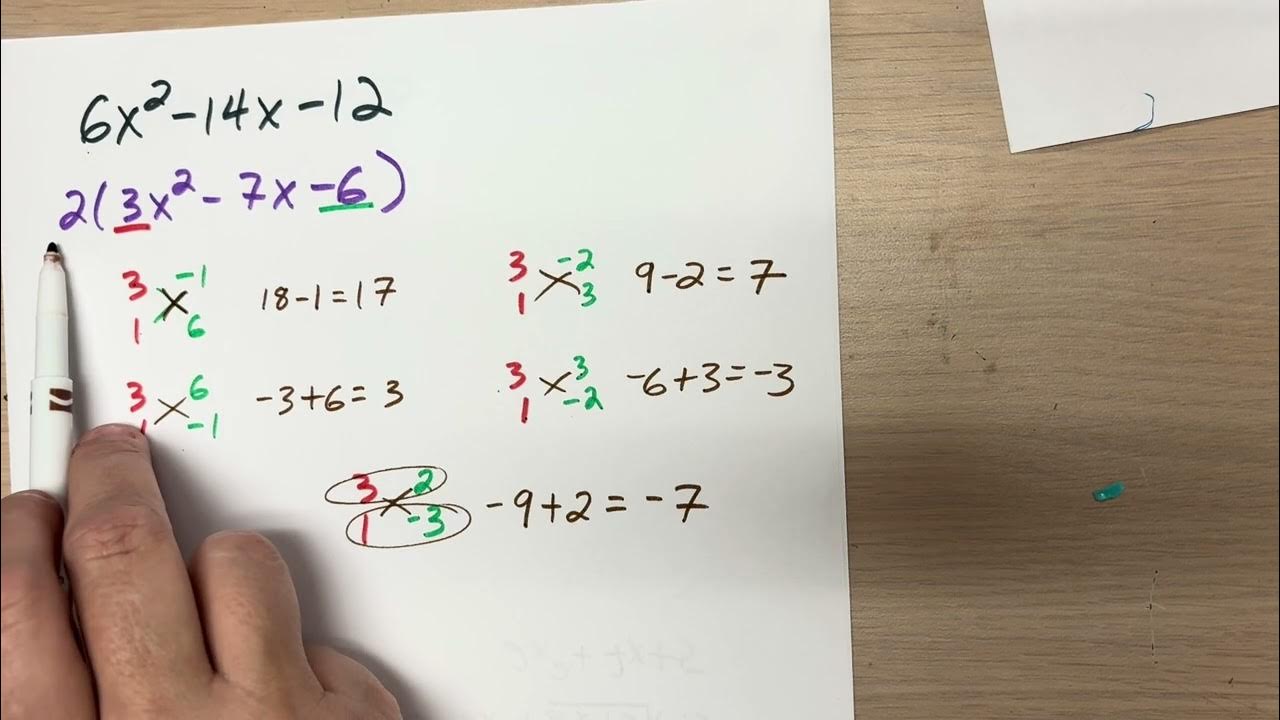 6x² - 14x - 12
2(3x² - 7x - 6)
3 -1
1 6
18 - 1 = 17
3 6
1 -1
-3 + 6 = 3
3 -2
1 3
9 - 2 = 7
3 3
1 -2
-6 + 3 = -3
3 2
1 -3
-9 + 2 = -7